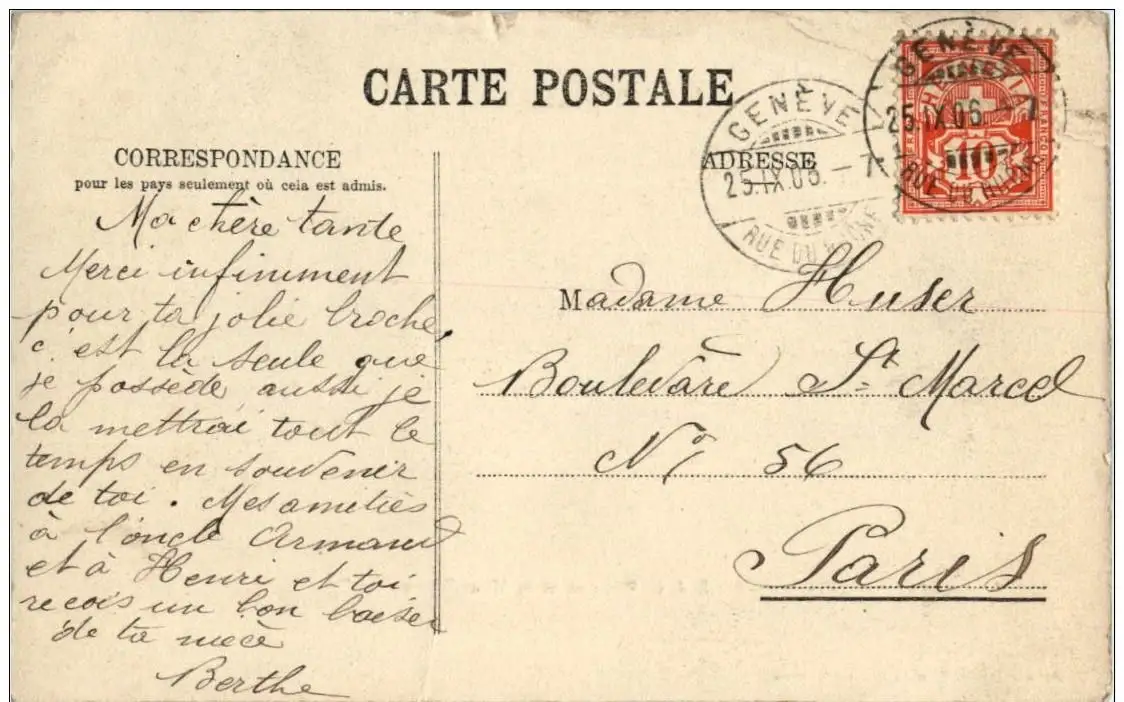 CARTE POSTALE
CORRESPONDANCE
pour les pays seulement où cela est admis.
Ma chère tante
Merci infiniment
pour ta jolie broche,
c'est la seule que
je possède aussi je
la mettrai tout le
temps en souvenir
de toi. Mes amitiés
à l'oncle Armand
et à Henri et toi
reçois un bon baiser
de ta nièce
Berthe
ADRESSE
GENÈVE
25.IX.06. – 7
RUE DU RHONE
GENÈVE
25.IX.06. – 7
RUE DU RHONE
HELVETIA
10
Madame Huser
Boulevàre St Marcel
No 56
Paris